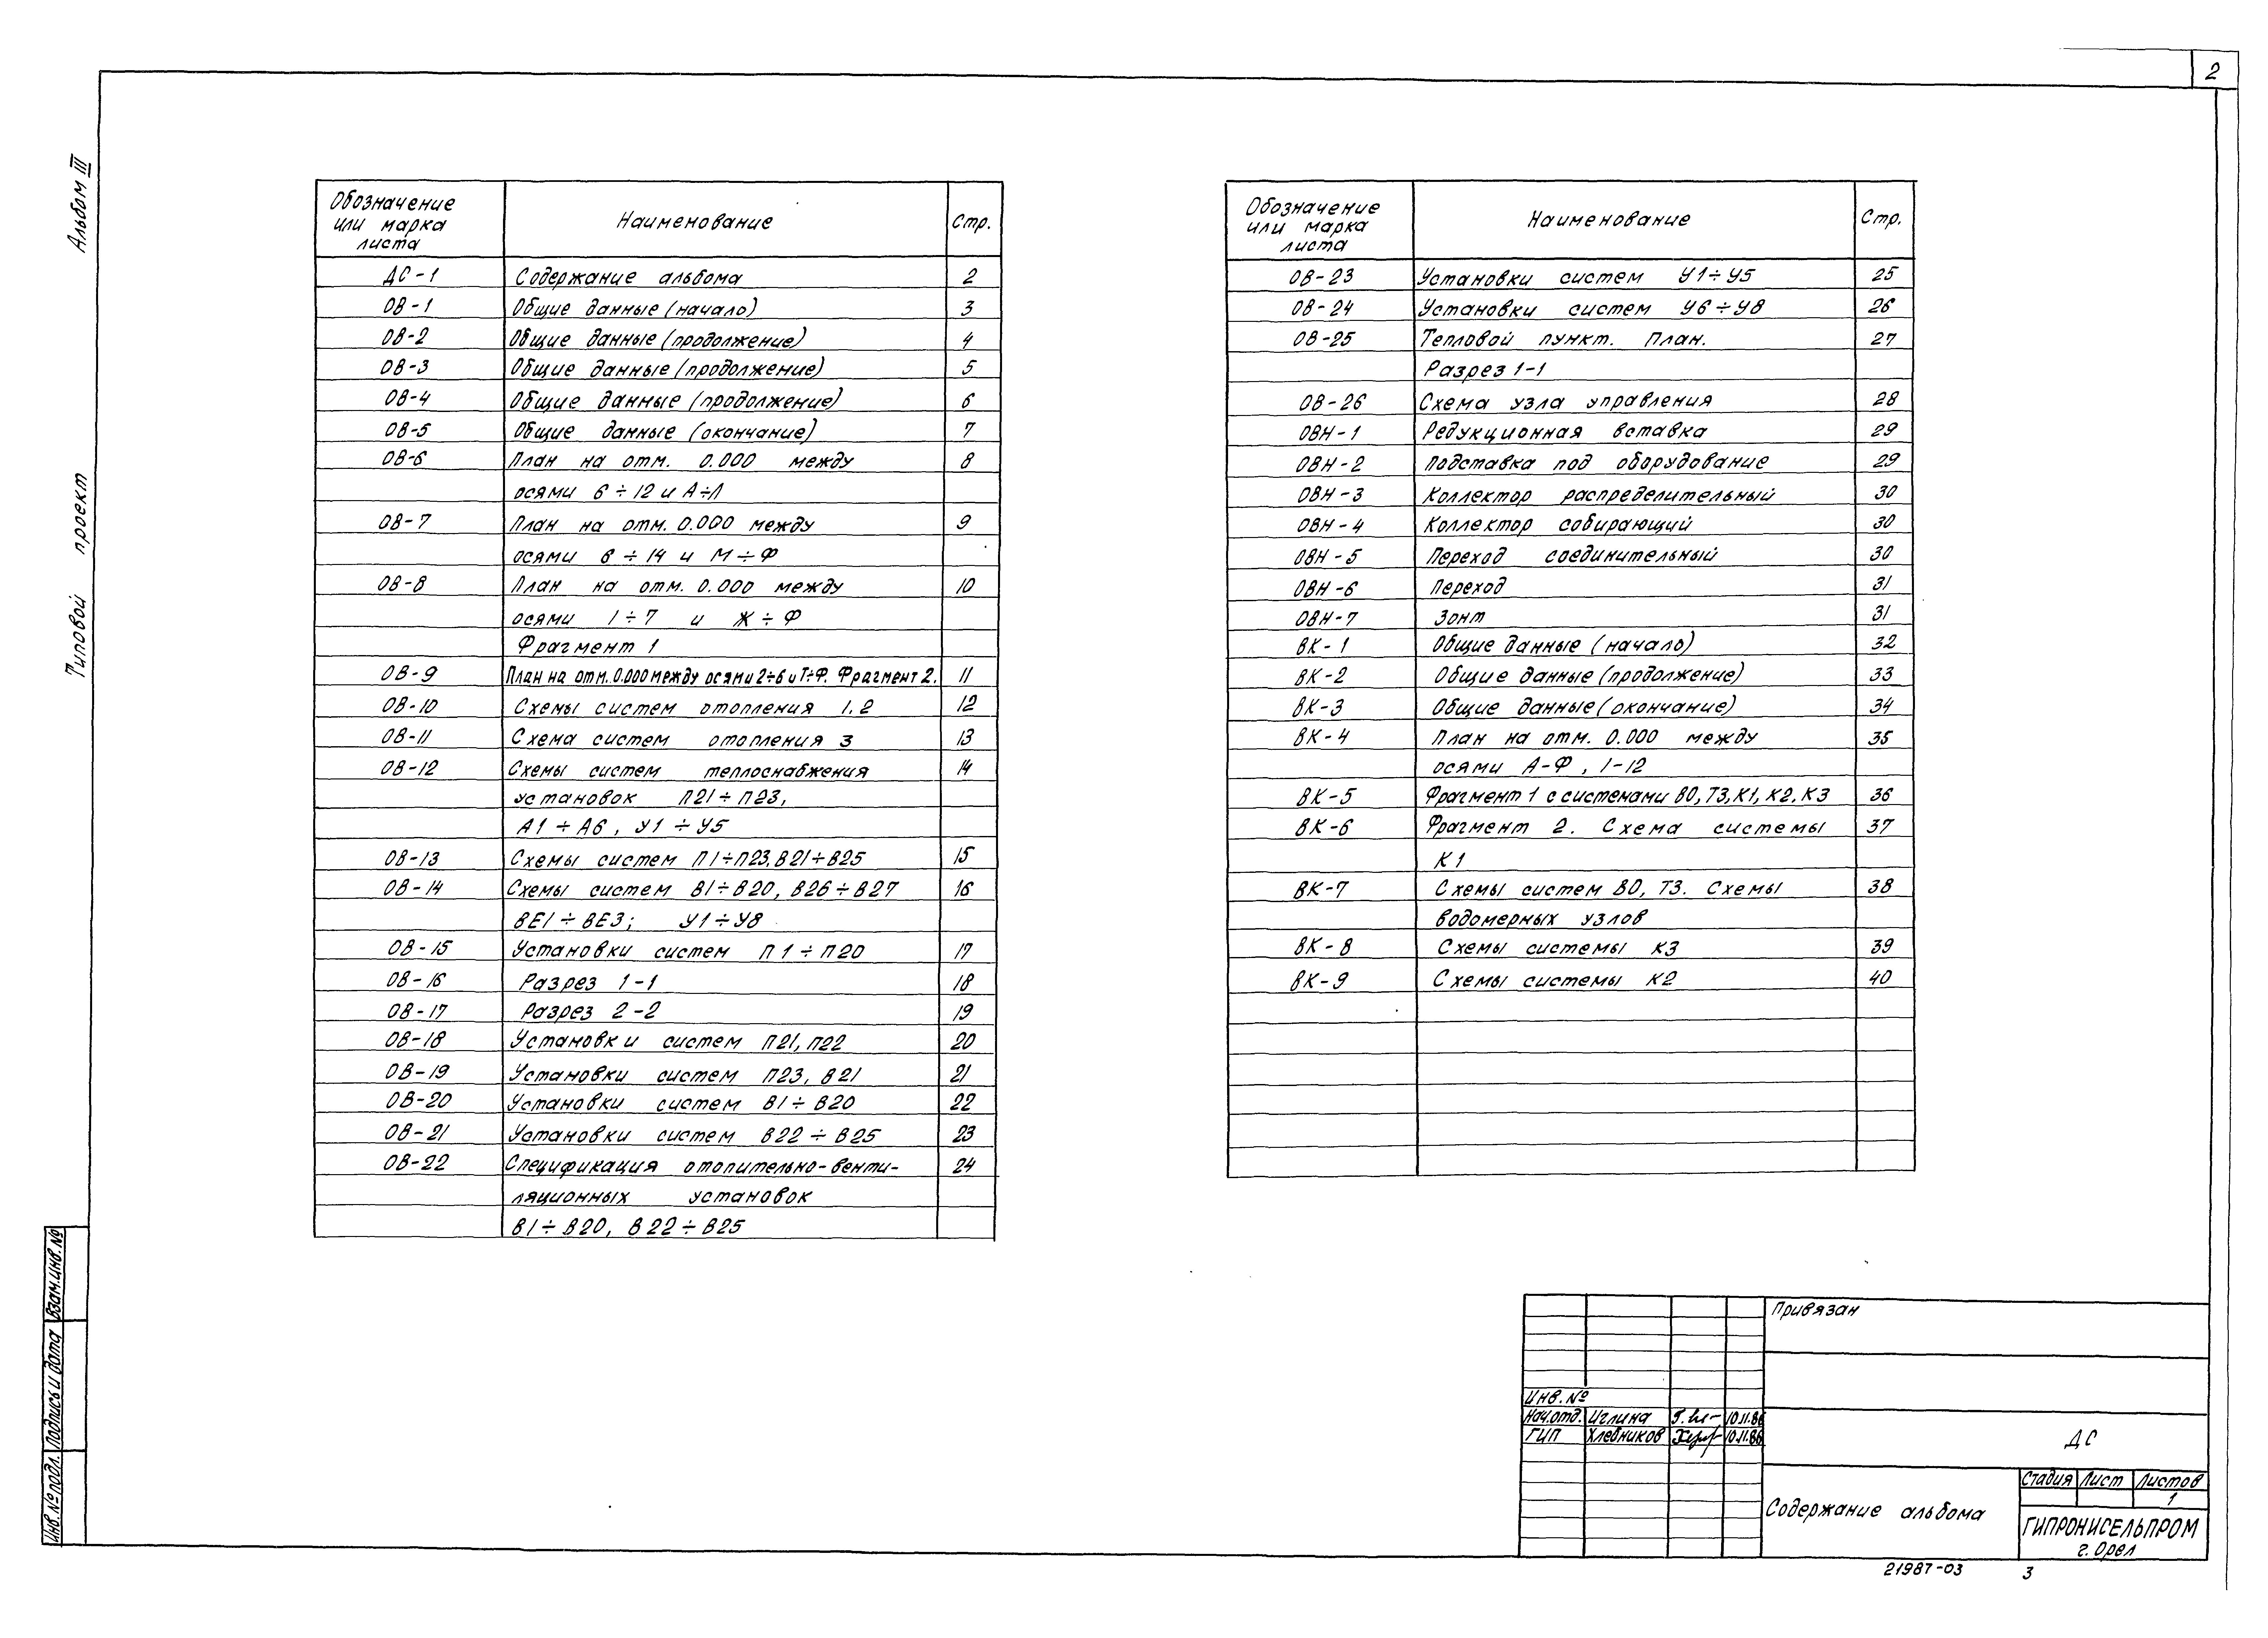 2
Альбом III
Типовой проект
Обозначение или марка листа Наименование Стр.
ДС-1 Содержание альбома 2
ОВ-1 Общие данные (начало) 3
ОВ-2 Общие данные (продолжение) 4
ОВ-3 Общие данные (продолжение) 5
ОВ-4 Общие данные (продолжение) 6
ОВ-5 Общие данные (окончание) 7
ОВ-6 План на отм. 0.000 между 8
осями 6÷12 и А÷Л
ОВ-7 План на отм. 0.000 между 9
осями 6÷14 и М÷Ф
ОВ-8 План на отм. 0.000 между 10
осями 1÷7 и Ж÷Ф
Фрагмент 1
ОВ-9 План на отм. 0.000 между осями 2÷6 и Т÷Ф. Фрагмент 2. 11
ОВ-10 Схемы систем отопления 1.2 12
ОВ-11 Схема систем отопления 3 13
ОВ-12 Схемы систем теплоснабжения 14
установок П21÷П23,
А1÷А6, У1÷У5
ОВ-13 Схемы систем П1÷П23, В21÷В25 15
ОВ-14 Схемы систем В1÷В20, В26÷В27 16
ВЕ1÷ВЕ3; У1÷У8
ОВ-15 Установки систем П1÷П20 17
ОВ-16 Разрез 1-1 18
ОВ-17 Разрез 2-2 19
ОВ-18 Установки систем П21, П22 20
ОВ-19 Установки систем П23, В21 21
ОВ-20 Установки систем В1÷В20 22
ОВ-21 Установки систем В22÷В25 23
ОВ-22 Спецификация отопительно-венти- 24
ляционных установок
В1÷В20, В22÷В25
Обозначение или марка листа Наименование Стр.
ОВ-23 Установки систем У1÷У5 25
ОВ-24 Установки систем У6÷У8 26
ОВ-25 Тепловой пункт. План. 27
Разрез 1-1
ОВ-26 Схема узла управления 28
ОВН-1 Редукционная вставка 29
ОВН-2 Подставка под оборудование 29
ОВН-3 Коллектор распределительный 30
ОВН-4 Коллектор собирающий 30
ОВН-5 Переход соединительный 30
ОВН-6 Переход 31
ОВН-7 Зонт 31
ВК-1 Общие данные (начало) 32
ВК-2 Общие данные (продолжение) 33
ВК-3 Общие данные (окончание) 34
ВК-4 План на отм. 0.000 между 35
осями А-Ф, 1-12
ВК-5 Фрагмент 1 с системами В0, Т3, К1, К2, К3 36
ВК-6 Фрагмент 2. Схема системы 37
К1
ВК-7 Схемы систем В0, Т3. Схемы 38
водомерных узлов
ВК-8 Схемы системы К3 39
ВК-9 Схемы системы К2 40
Взам.инв.№
Подпись и дата
Инв.№ подл.
Привязан
Инв.№
Нач.отд. Иглина 10.11.86
ГИП Хлебников 10.11.86
ДС
Содержание альбома
Стадия Лист Листов
1
ГИПРОНИСЕЛЬПРОМ
г. Орел
21987-03 3